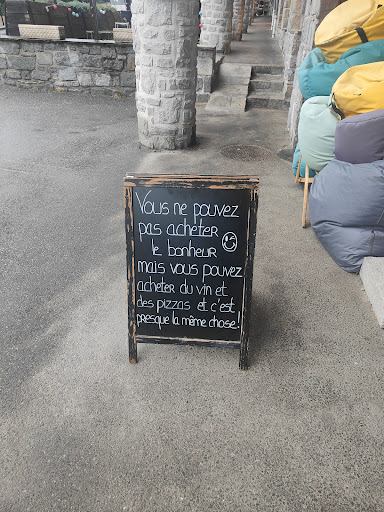 Vous ne pouvez
pas acheter
le bonheur
mais vous pouvez
acheter du vin et
des pizzas et c'est
presque la même chose!